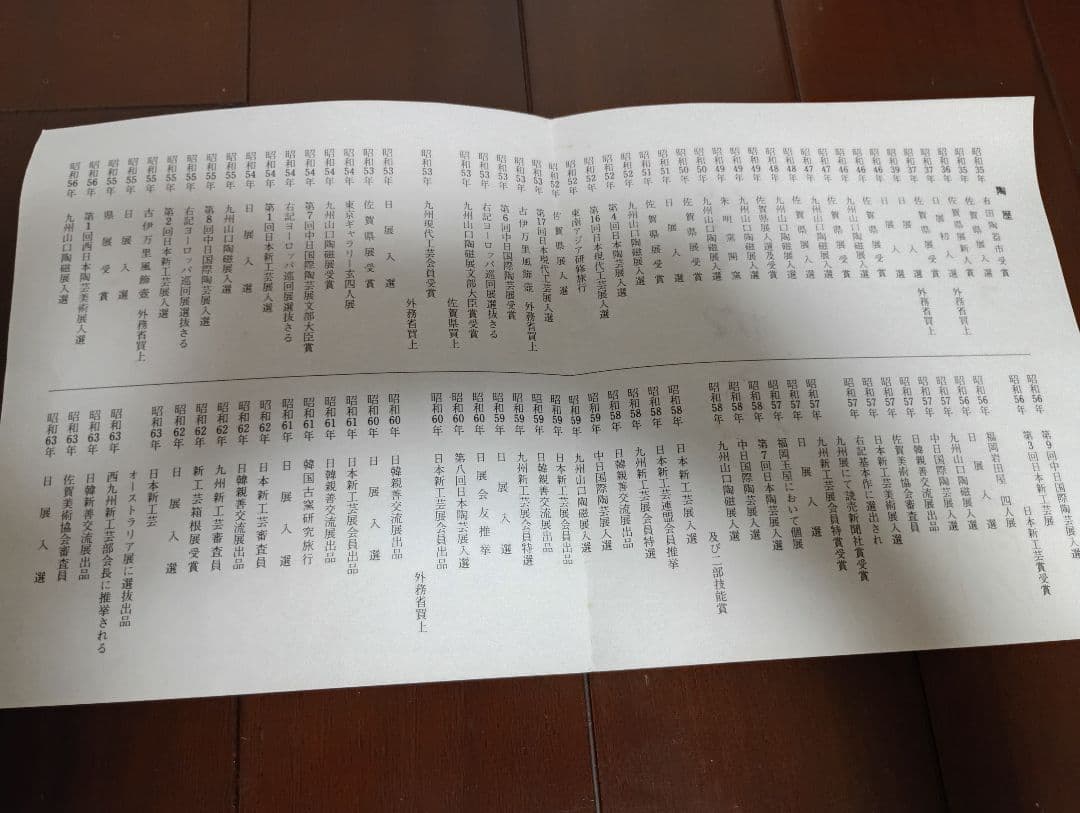 陶歴
昭和35年 有田陶器市受賞
昭和35年 佐賀県展新人賞 外務省買上
昭和36年 佐賀県展受賞
昭和37年 日展初入選 外務省買上
昭和37年 佐賀県展受賞
昭和39年 日展入選
昭和46年 日展入選
昭和46年 佐賀県展受賞
昭和46年 九州山口陶磁展入選
昭和47年 佐賀県展入選
昭和47年 九州山口陶磁展入選
昭和48年 佐賀県展入選
昭和48年 九州山口陶磁展入選
昭和49年 佐賀県展入選及受賞
昭和49年 九州山口陶磁展入選
昭和49年 朱明窯開窯
昭和50年 九州山口陶磁展入選
昭和50年 佐賀県展入選
昭和51年 日展入選
昭和51年 佐賀県展受賞
昭和52年 九州山口陶磁展入選
昭和52年 第4回日本陶芸展入選
昭和52年 第16回日本現代工芸展入選
昭和52年 東南アジア研修旅行
昭和53年 佐賀県展入選
昭和53年 第17回日本現代工芸展入選
昭和53年 古伊万里風飾壷 外務省買上
昭和53年 第6回中日国際陶芸展受賞
昭和53年 右記ヨーロッパ巡回展選抜さる
昭和53年 九州山口陶磁展文部大臣賞受賞
佐賀県買上
昭和53年 九州現代工芸会員受賞
外務省買上
昭和53年 日展入選
昭和53年 佐賀県展受賞
昭和54年 東京ギャラリー玄四人展
昭和54年 九州山口陶磁展受賞
昭和54年 第7回中日国際陶芸展文部大臣賞
昭和54年 右記ヨーロッパ巡回展選抜さる
昭和54年 第1回日本新工芸展入選
昭和54年 日展入選
昭和55年 九州山口陶磁展入選
昭和55年 第8回中日国際陶芸展入選
昭和55年 右記ヨーロッパ巡回展選抜さる
昭和55年 第2回日本新工芸展入選
昭和55年 古伊万里風飾壷 外務省買上
昭和55年 日展入選
昭和55年 県展受賞
昭和56年 第1回西日本陶芸美術展入選
昭和56年 九州山口陶磁展入選
昭和56年 第9回中日国際陶芸展入選
昭和56年 第3回日本新工芸展 日本新工芸賞受賞
福岡岩田屋 四人展
昭和56年 日展入選
昭和56年 九州山口陶磁展入選
昭和57年 中日国際陶芸展入選
昭和57年 日韓親善交流展出品
昭和57年 佐賀美術協会審査員
昭和57年 日本新工芸展入選
昭和57年 右記基本作に選出され
九州展にて読売新聞社賞受賞
昭和57年 九州新工芸展会員特賞受賞
昭和57年 日展入選
昭和57年 福岡玉屋において個展
昭和57年 第7回日本陶芸展入選
昭和58年 中日国際陶芸展入選
昭和58年 九州山口陶磁展入選
及び二部技能賞
昭和58年 日本新工芸展入選
昭和58年 日本新工芸連盟会員推挙
昭和58年 九州新工芸展会員特選
昭和58年 日韓親善交流展出品
昭和59年 中日国際陶芸展入選
昭和59年 九州山口陶磁展入選
昭和59年 日本新工芸展会員出品
昭和59年 日韓親善交流展出品
昭和59年 九州新工芸展会員特選
昭和59年 日展入選
昭和60年 日展会友推挙
昭和60年 第八回日本陶芸展入選
昭和60年 日本新工芸展会員出品
外務省買上
昭和60年 日韓親善交流展出品
昭和60年 日展入選
昭和61年 日本新工芸展会員出品
昭和61年 日韓親善交流展出品
昭和61年 韓国古窯研究旅行
昭和61年 日展入選
昭和62年 日本新工芸審査員
昭和62年 日韓親善交流展出品
昭和62年 九州新工芸審査員
昭和62年 新工芸箱根展受賞
昭和62年 日展入選
昭和63年 日本新工芸
オーストラリア展に選抜出品
昭和63年 西九州新工芸部会長に推挙される
昭和63年 日韓新善交流展出品
昭和63年 佐賀美術協会審査員
昭和63年 日展入選